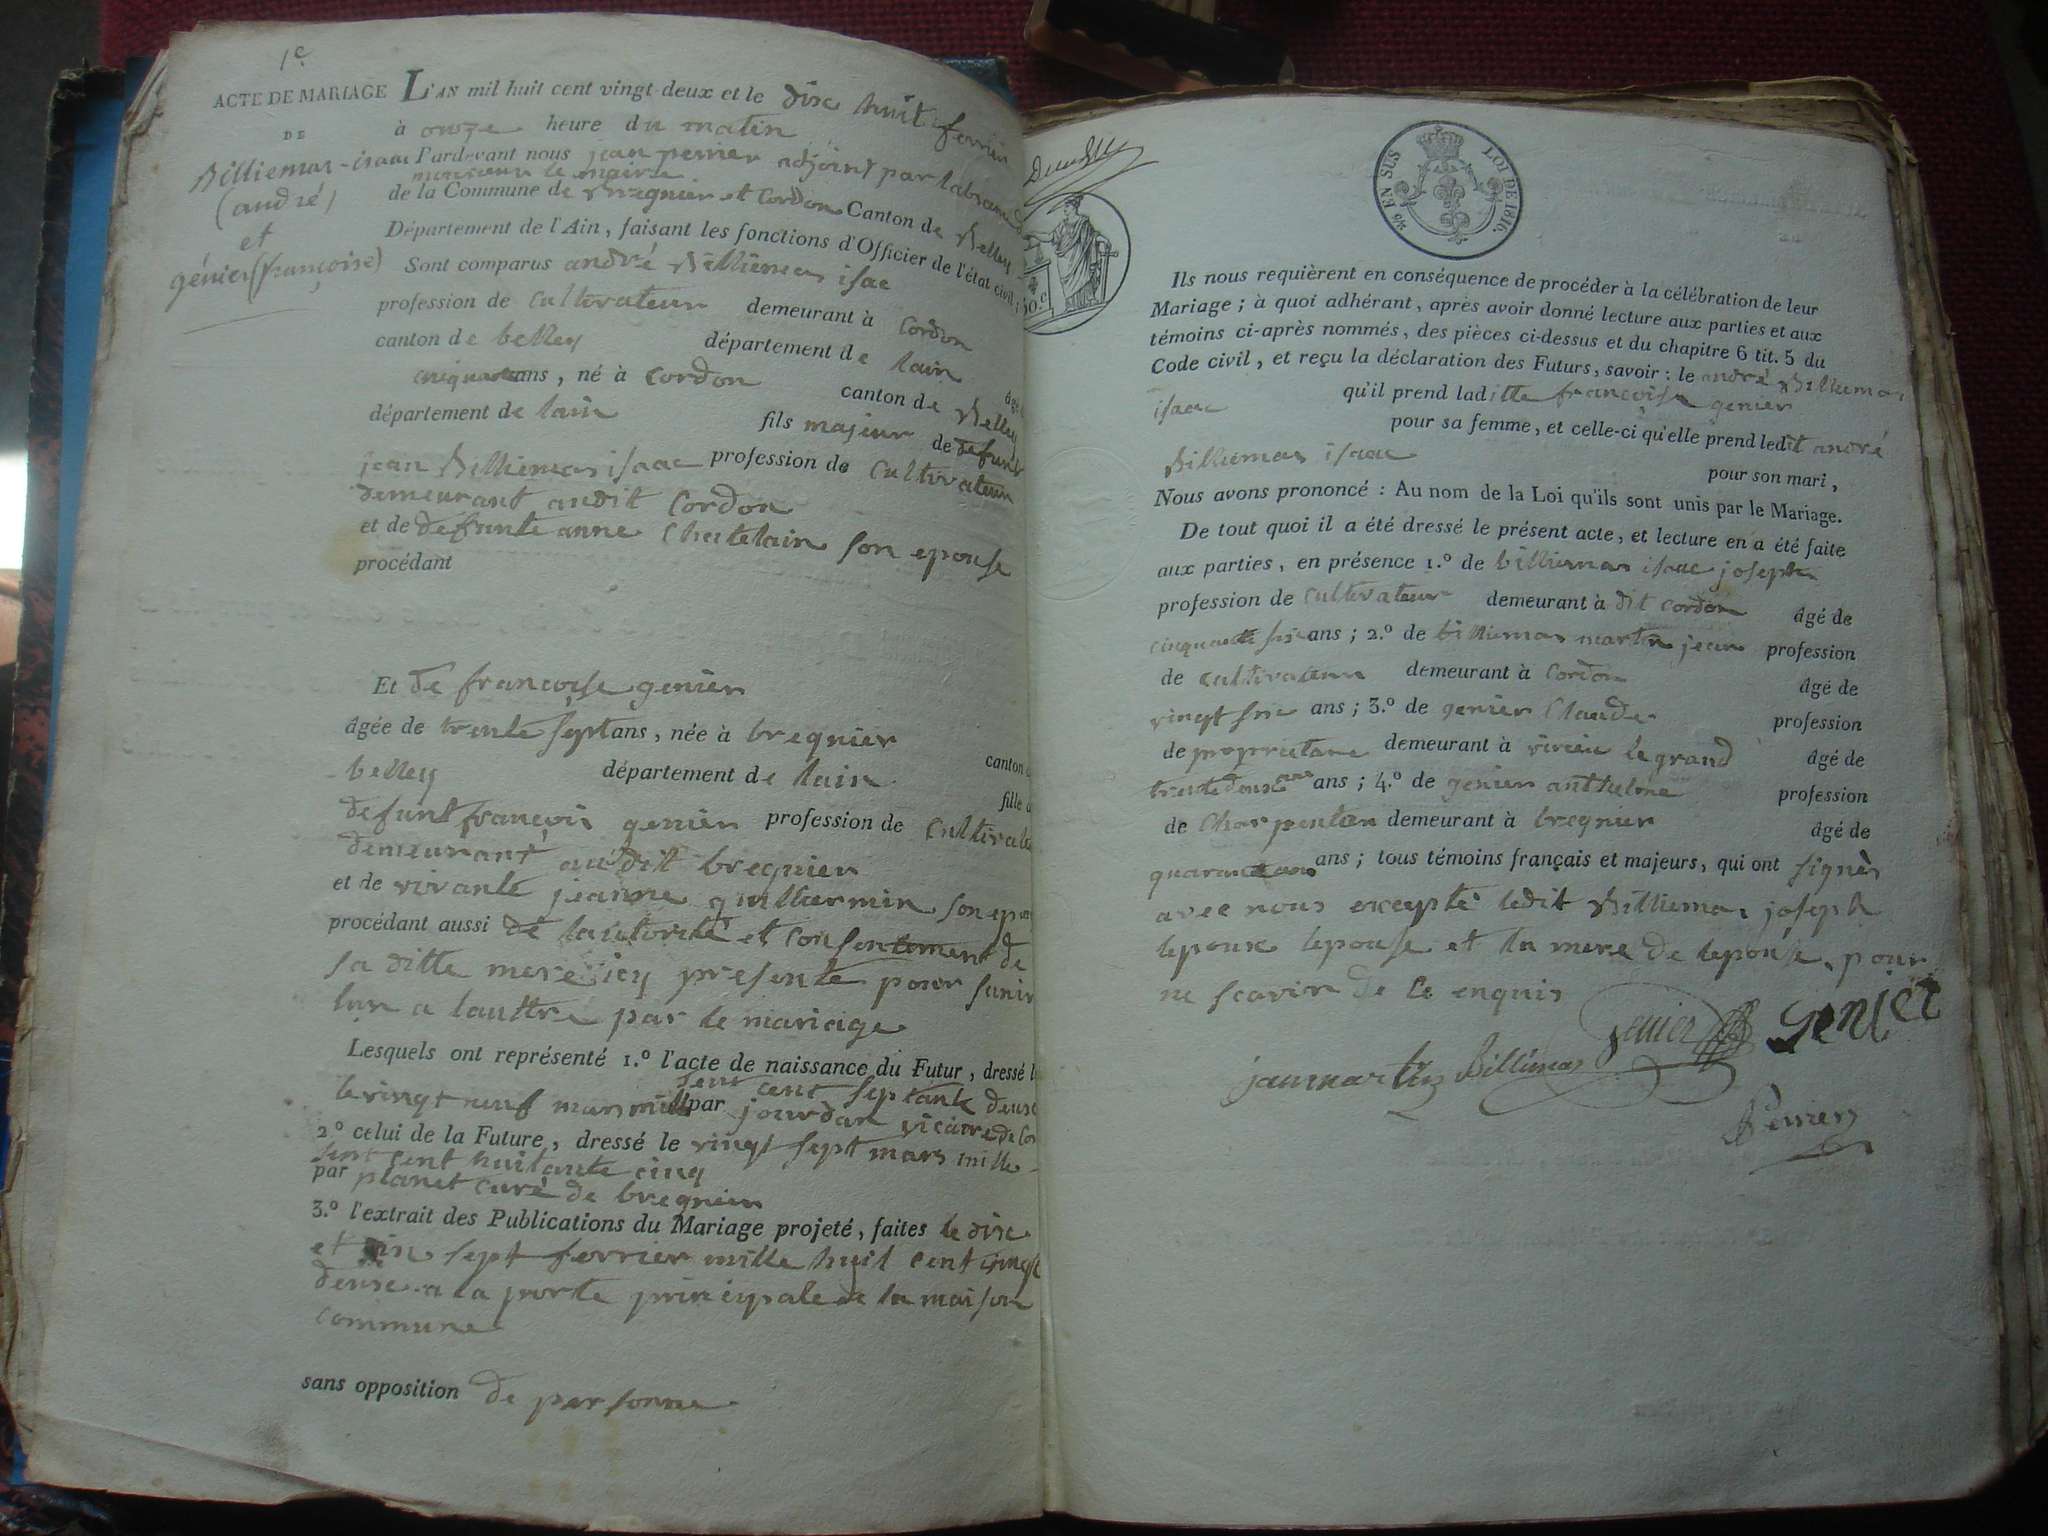 1e
ACTE DE MARIAGE
DE
Billiemas-isaac
(andré)
et
génier (françoise)
L'AN mil huit cent vingt deux et le dix huit fevrier
à onze heure du matin
Pardevant nous jean perrier adjoint par labsence de
monsieur le maire
de la Commune de Bregnier et Cordon Canton de Belley
Département de l'Ain, faisant les fonctions d'Officier de l'état civil;
Sont comparus andré Billiemas isac
profession de Cultivateur demeurant à Cordon
canton de belley département de lain
âgé
cinquante ans, né à Cordon canton de Belley
département de lain fils majeur de defunt
jean Billiemas isaac profession de Cultivateur
demeurant audit Cordon
et de defunte anne Chatelain son epouse
procédant
Et de francoise genier
âgée de trente sept ans, née à bregnier canton
belley département de lain fille
defunt francois genier profession de Cultivate
demeurant au dit bregnier
et de vivante jeanne guillermin son epou
procédant aussi de lautorité et consentement de
sa ditte mere icy presente pour sunir
lun a lauttre par le mariage
Lesquels ont représenté 1.º l'acte de naissance du Futur, dressé l
sent cent septante deux
le vingt neuf mars mill par jourdan vicaire de Cor
2º celui de la Future, dressé le vingt sept mars mille
sent cent huitante cinq
par planet curé de bregnier
3.º l'extrait des Publications du Mariage projeté, faites le dix
et dix sept fevrier mille huit cent vingt
deux a la porte principale de la maison
commune
sans opposition de personne
50.c
40 EN SUS LOI DE 1816.
Ils nous requièrent en conséquence de procéder à la célébration de leur
Mariage; à quoi adhérant, après avoir donné lecture aux parties et aux
témoins ci-après nommés, des pièces ci-dessus et du chapitre 6 tit. 5 du
Code civil, et reçu la déclaration des Futurs, savoir: le andré Billiemas
isaac qu'il prend laditte françoise genier
pour sa femme, et celle-ci qu'elle prend ledit andré
Billiemas isaac pour son mari,
Nous avons prononcé: Au nom de la Loi qu'ils sont unis par le Mariage.
De tout quoi il a été dressé le présent acte, et lecture en a été faite
aux parties, en présence 1.º de billiemas isaac joseph
profession de Cultivateur demeurant à dit Cordon âgé de
cinquante six ans; 2.º de billiemas martin jean profession
de Cultivateur demeurant à Cordon âgé de
vingt six ans; 3.º de genier Claude profession
de proprietaire demeurant à virieu le grand âgé de
trente deux ans; 4.º de genier anthelme profession
de Charpentier demeurant à bregnier âgé de
quarante ans ans; tous témoins français et majeurs, qui ont signés
avec nous excepté ledit Billiemas joseph
lepoux lepouse et la mere de lepouse, pour
ne scavoir de ce enquis
genier Geniet
jean martin Billiemas
Perrier